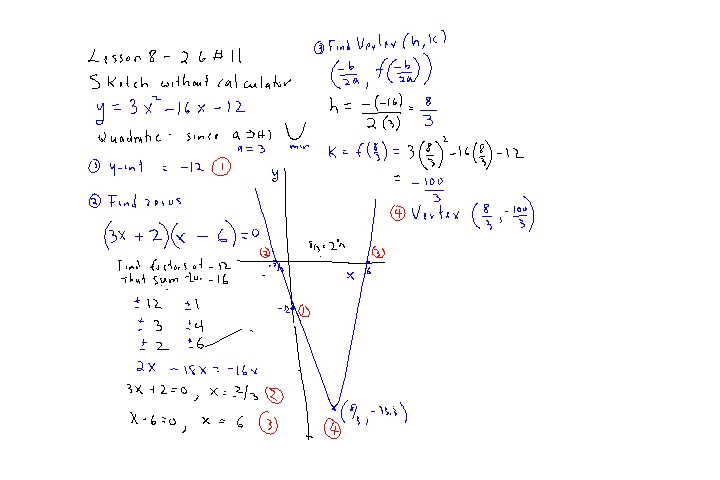 Lesson 8 - 2 6 # 11
Sketch without calculator
y = 3x² - 16x - 12
Quadratic - since
a = 3
min
① y-int = -12 ①
② Find zeros
(3x + 2)(x - 6) = 0
Find factors of -12
that sum to -16
± 12 ± 1
± 3 ± 4
± 2 ± 6
2x - 18x = -16x
3x + 2 = 0, x = -2/3 ②
x - 6 = 0, x = 6 ③
③ Find Vertex (h, k)
(-b/2a, f(-b/2a))
h = -(-16)/2(3) = 8/3
k = f(8/3) = 3(8/3)² - 16(8/3) - 12
= -100/3
④ Vertex (8/3, -100/3)
y
②
③
x
6
-12
①
④